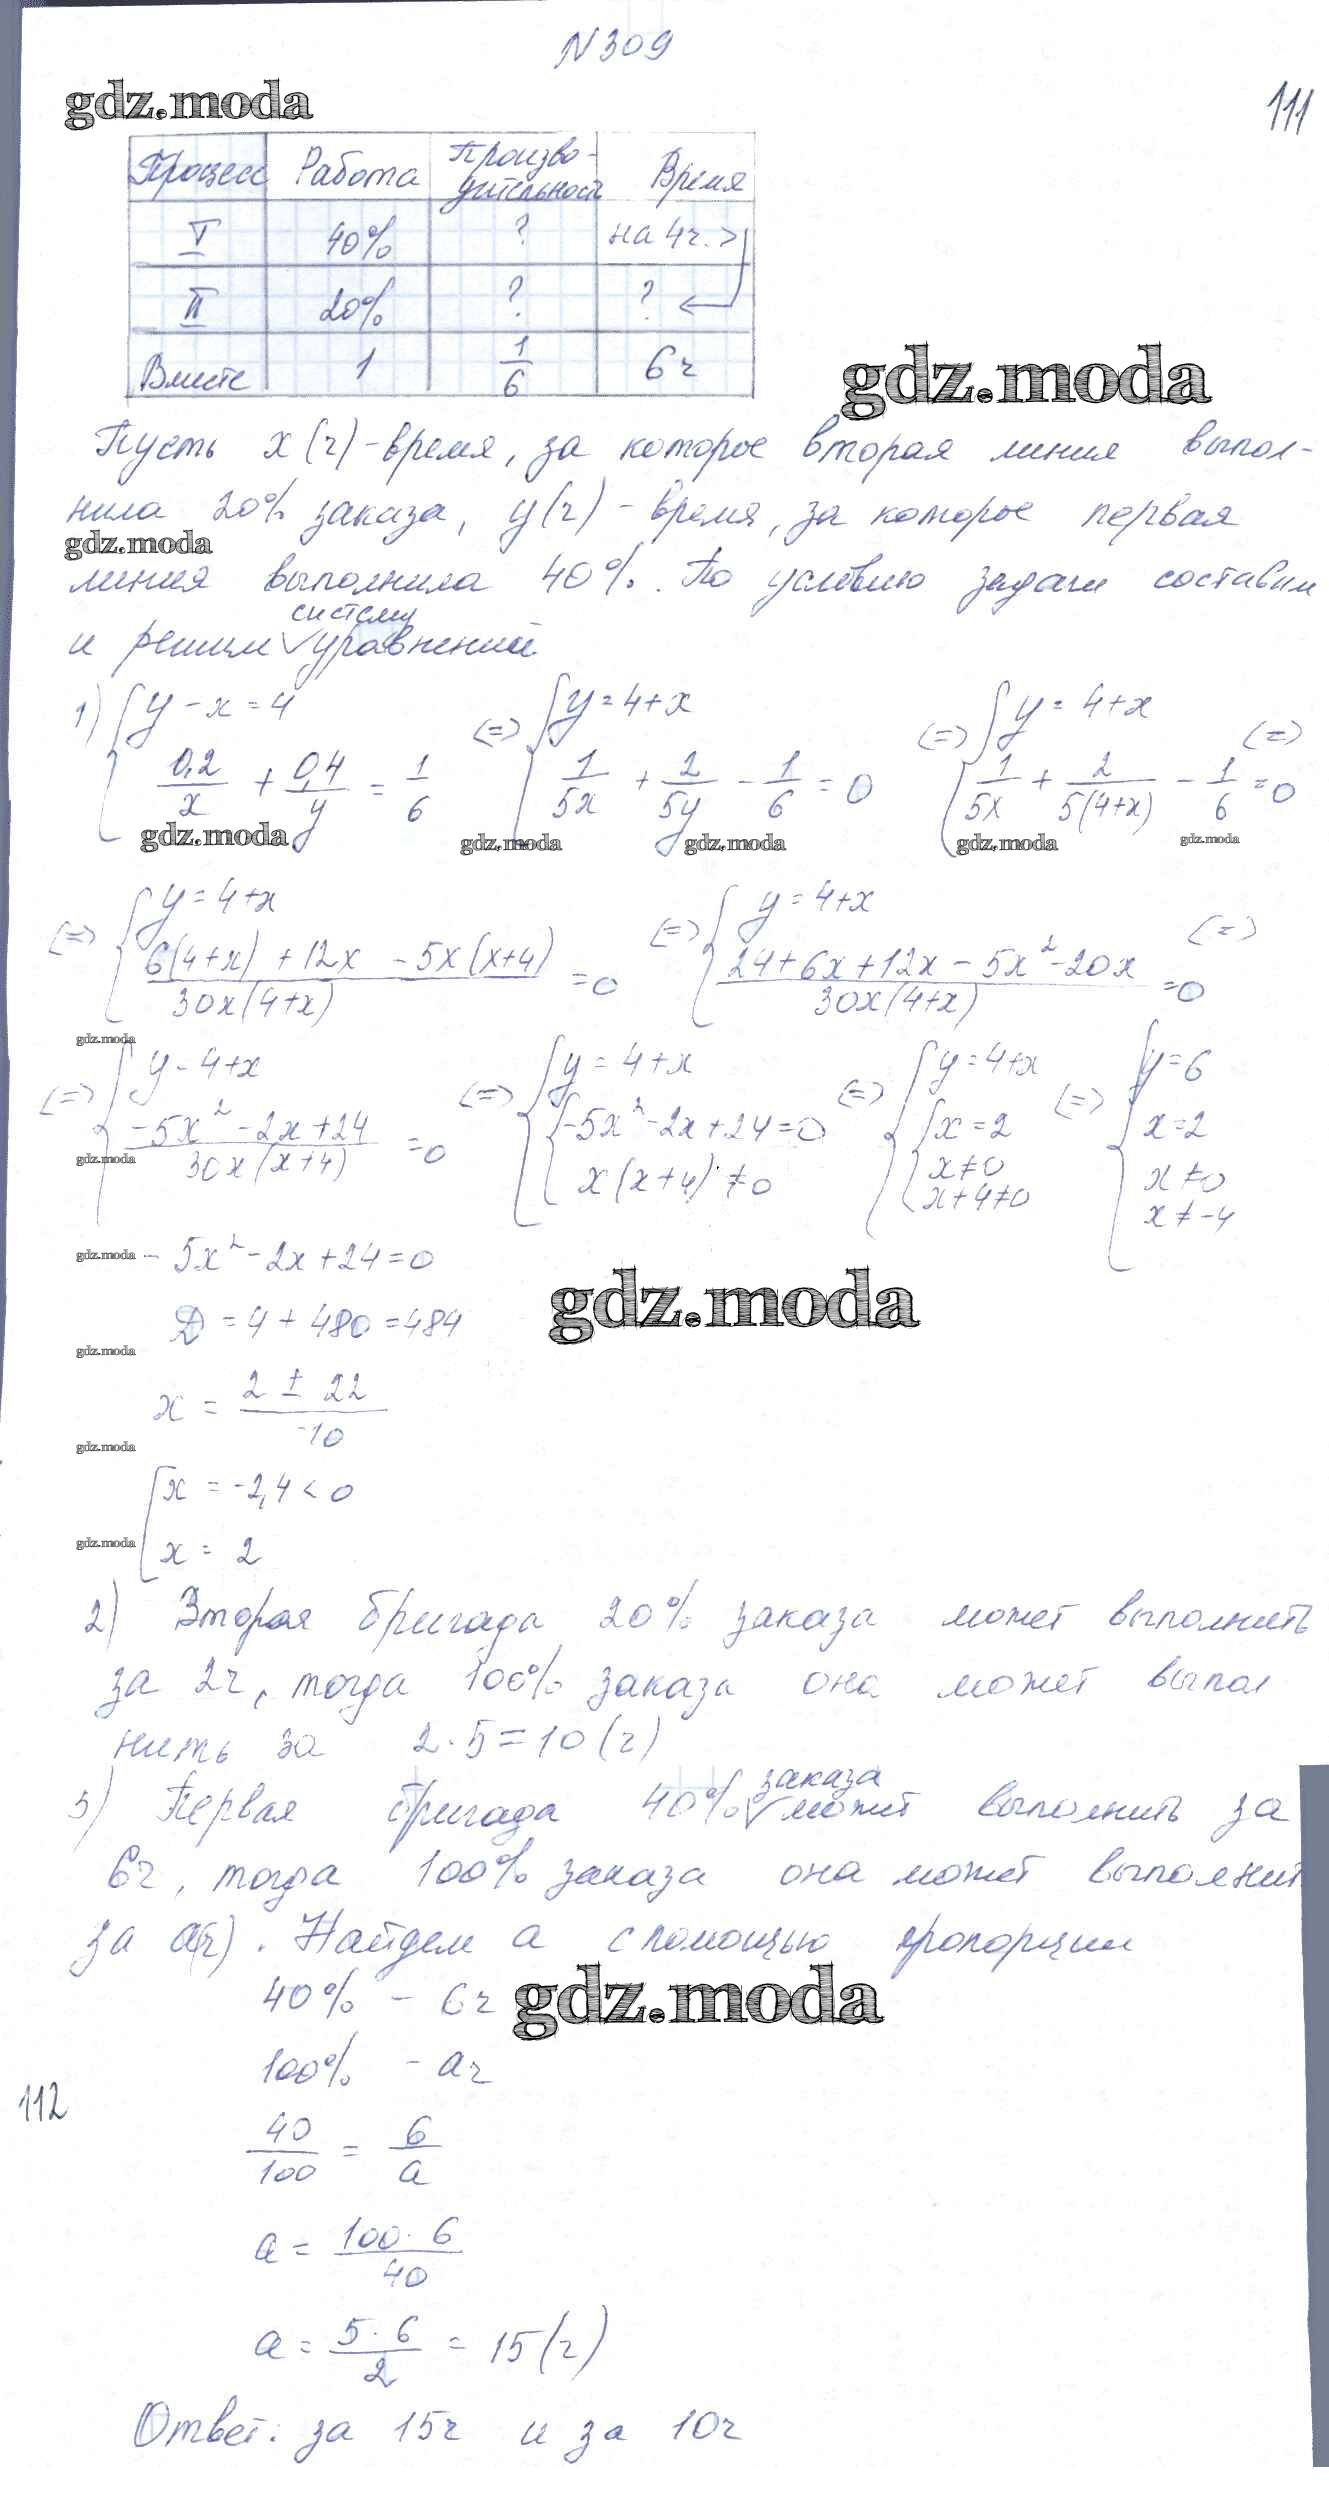 N 309
gdz.moda
111
Процесс Работа Производительность Время
I 40% ? на 4ч. >
II 20% ? ?
Вместе 1 1/6 6ч
gdz.moda
Пусть x (ч) - время, за которое вторая линия выпол-
нила 20% заказа, y (ч) - время, за которое первая
gdz.moda
линия выполнила 40%. По условию задачи составим
и решим систему уравнений
1) { y - x = 4 (=) { y = 4+x (=) { y = 4+x (=)
{ 0,2/x + 0,4/y = 1/6 { 1/5x + 2/5y - 1/6 = 0 { 1/5x + 2/5(4+x) - 1/6 = 0
gdz.moda gdz.moda gdz.moda gdz.moda gdz.moda
(=) { y = 4+x (=) { y = 4+x (=)
{ 6(4+x) + 12x - 5x(x+4) / 30x(4+x) = 0 { 24+6x+12x - 5x² - 20x / 30x(4+x) = 0
gdz.moda
(=) { y - 4+x (=) { y = 4+x (=) { y = 4+x (=) { y = 6
{ -5x² - 2x + 24 / 30x(x+4) = 0 { { -5x² - 2x + 24 = 0 { { x = 2 x = 2
gdz.moda
x(x+4) ≠ 0 x ≠ 0 x ≠ 0
x+4 ≠ 0 x ≠ -4
gdz.moda
- 5x² - 2x + 24 = 0
gdz.moda
D = 4 + 480 = 484
gdz.moda
x = 2 ± 22 / -10
gdz.moda
[ x = -2,4 < 0
gdz.moda
[ x = 2
2) Вторая бригада 20% заказа может выполнить
за 2ч, тогда 100% заказа она может выпол
нить за 2·5=10 (ч)
3) Первая бригада 40% заказа может выполнить за
6ч, тогда 100% заказа она может выполнит
за a(ч). Найдем a с помощью пропорции
40% - 6ч
gdz.moda
100% - aч
112
40/100 = 6/a
a = 100·6/40
a = 5·6/2 = 15 (ч)
Ответ: за 15ч и за 10ч